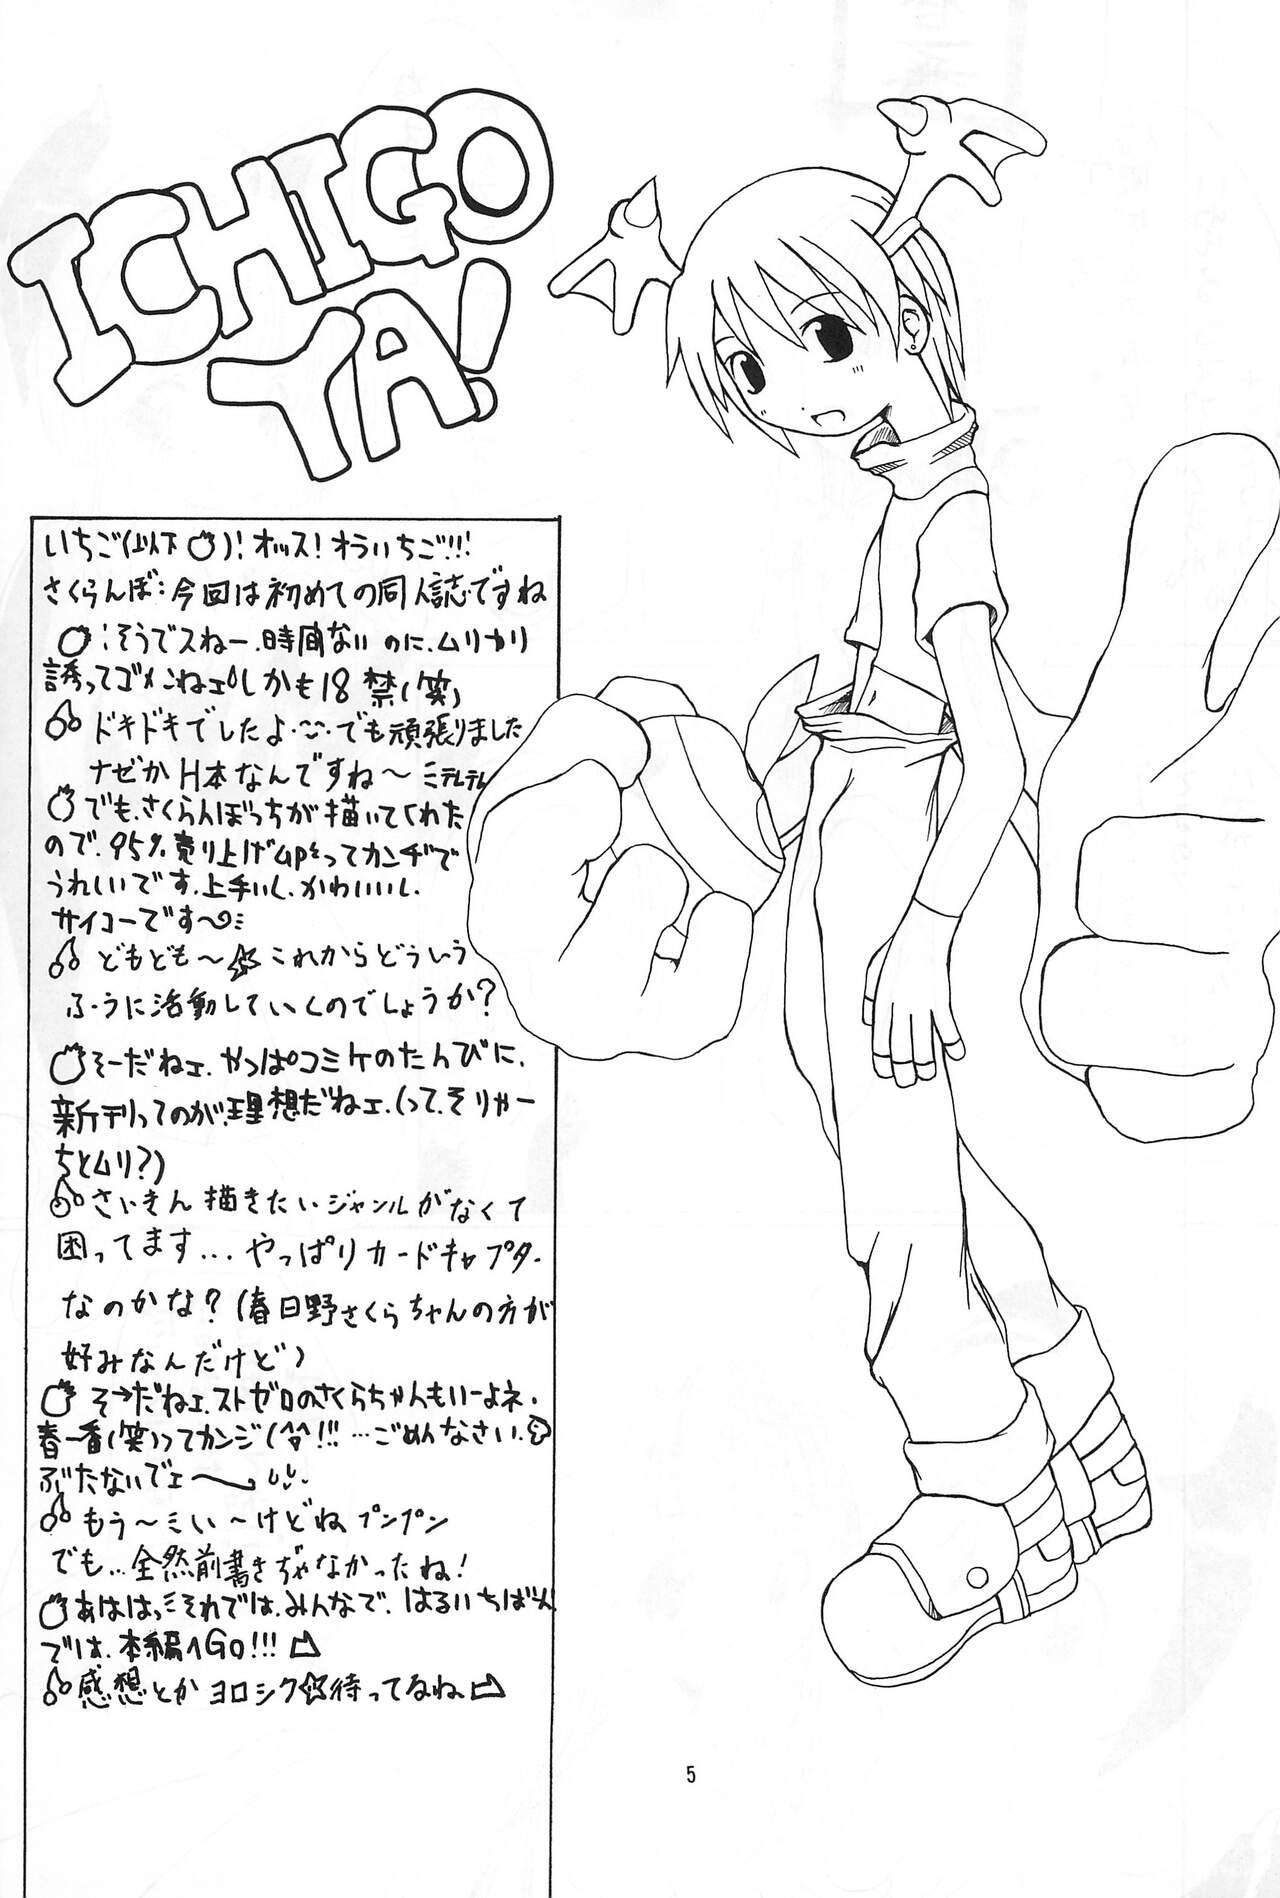 ICHIGO
YA!
いちご(以下🍓)!オッス!オラいちご!!!
さくらんぼ:今回は初めての同人誌ですね
:そうでスねー.時間ないのに.ムリヤリ
誘ってゴメンねェ しかも18禁(笑)
🍒ドキドキでしたよ…でも頑張りました
ナゼか H本なんですね〜
でも.さくらんぼっちが描いてくれた
ので.95%売り上げupってカンヂで
うれしいです.上手いし.かわいいし.
サイコーです〜
🍒どもども〜☆これからどういう
ふうに活動していくのでしょうか?
そーだねェ.やっぱコミケのたんびに.
新刊ってのが.理想だねェ.(って.そりゃー
ちとムリ?)
🍒さいきん描きたいジャンルがなくて
困ってます...やっぱりカードキャプター
なのかな?(春日野さくらちゃんの方が
好みなんだけど)
そーだねェ.ストゼロのさくらちゃんもいーよネ.
春一番(笑)ってカンジ(^^)!!!…ごめんなさい.
ぶたないでェ〜
🍒もう〜 い〜けどね プンプン
でも...全然前書きぢゃなかったね!
あははっ それでは.みんなで.はるいちばん
では.本編へGo!!!
🍒感想とか ヨロシク☆待ってるね
5